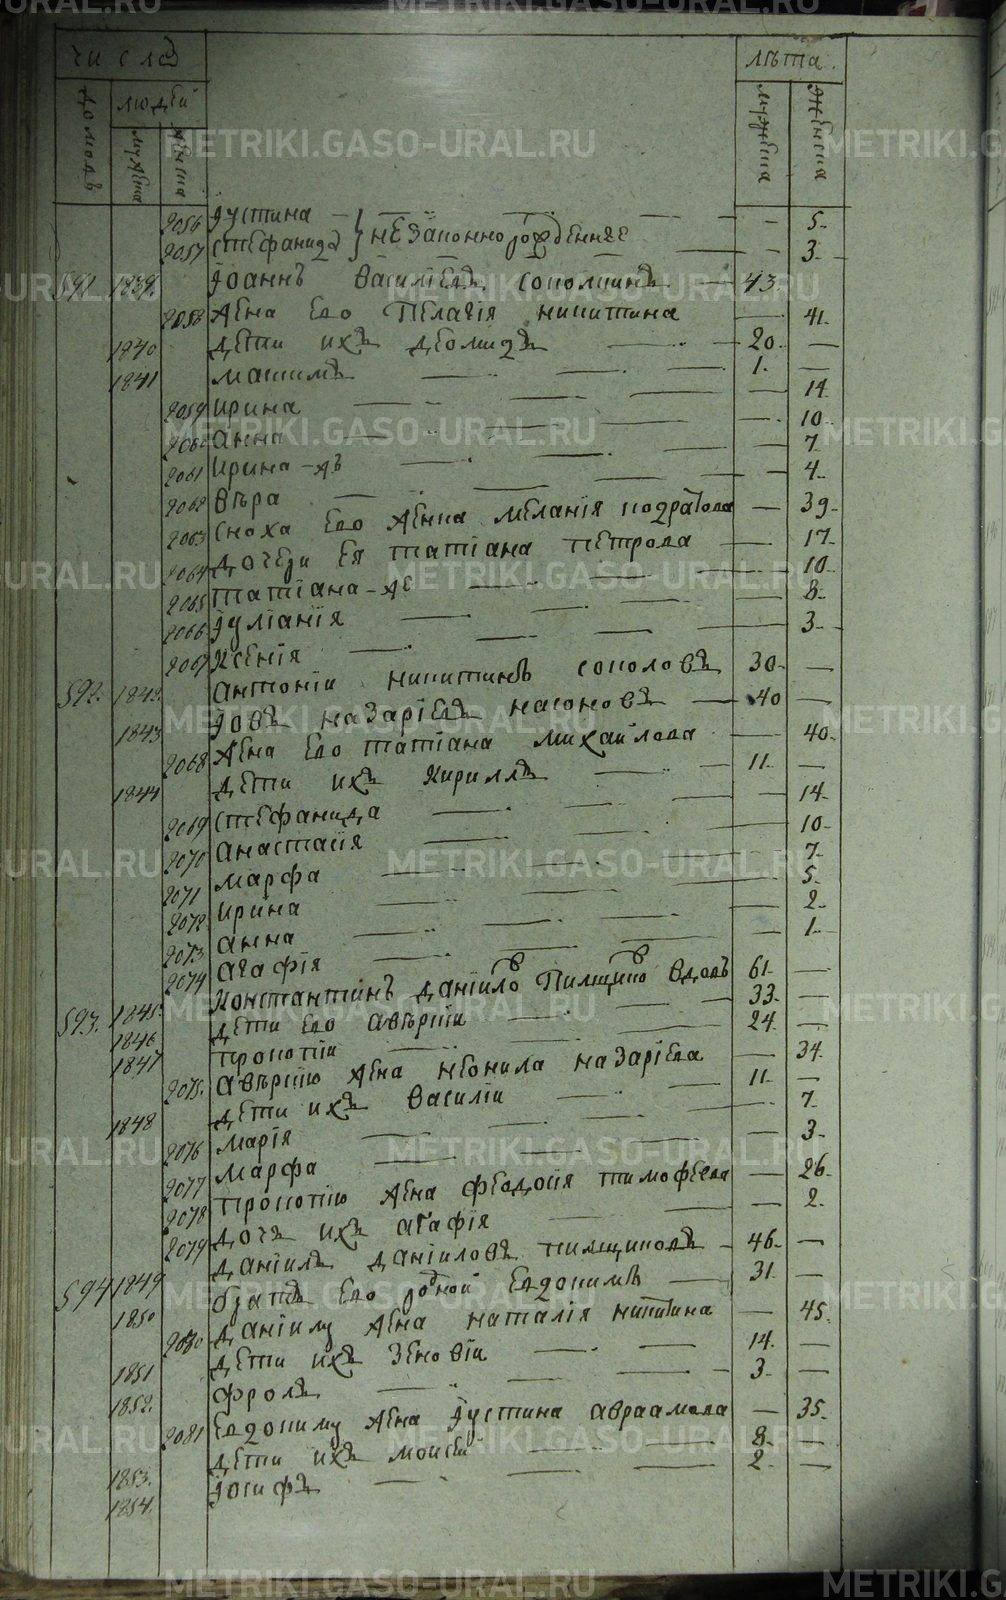 числа
лѣта.
домовъ людей
мужеска женска
мужеска женска
2056 Іустина — 5.
2057 Стефанида } незаконнорожденнѣе — 3.
591 1839. Іоаннъ Василіевъ Соколкинъ — 43.
2058 Жена его Пелагія Никитина — 41.
1840 Дети ихъ Деомидъ — 20. —
1841 Макимъ — 1. —
2059 Ирина — 14
2060 Анна — 10.
2061 Ирина-жъ — 7
2062 Вѣра — 4.
2063 Сноха его женка Меланія Кодратова — 39.
2064 Дочери ея Татіана Петрова — 17.
2065 Татіана-же — 10.
2066 Іуліанія — 8.
2067 Ксенія — 3.
592. 1842. Антоніи Никитинъ Соколовъ 30. —
1843 Іовъ Назаріевъ Насоновъ — 40 —
2068 Жена его Татіана Михайлова — 40.
1844 Дети ихъ Кириллъ — 11. —
2069 Стефанида — 14.
2070 Анастасія — 10.
2071 Марфа — 7.
2072. Ирина — 5.
2073 Анна — 2.
2074 Агафія — 1.
593. 1845. Константинъ Даніиловъ Пилщиковъ вдовъ 61. —
1846 Дети его Авѣркіи — 33. —
1847 Прокопіи — 24. —
2075. Авѣркію жена Неонила Назаріева — 34.
1848 Дети ихъ Василіи — 11. —
2076 Марія — 7.
2077 Марфа — 3.
2078 Прокопію жена Феодосія Тимофеева — 26.
2079 Дочь ихъ Агафія — 2.
594 1849 Даніилъ Даніиловъ Пилщиковъ — 46. —
1850 Братъ его родной Евдокимъ — 31. —
2080 Даніилу жена Наталія Никитина — 45.
1851 Дети ихъ Зеновіи — 14. —
1852. Фролъ — 3. —
2081 Евдокиму жена Іустина Авраамова — 35.
1853. Дети ихъ Моисей — 8. —
1854. Іосифъ — 2. —
METRIKI.GASO-URAL.RU